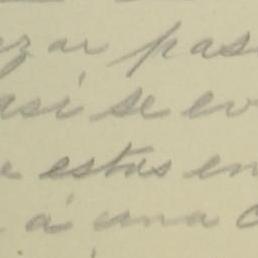 zar pas
así se ev
e estas en
á una c